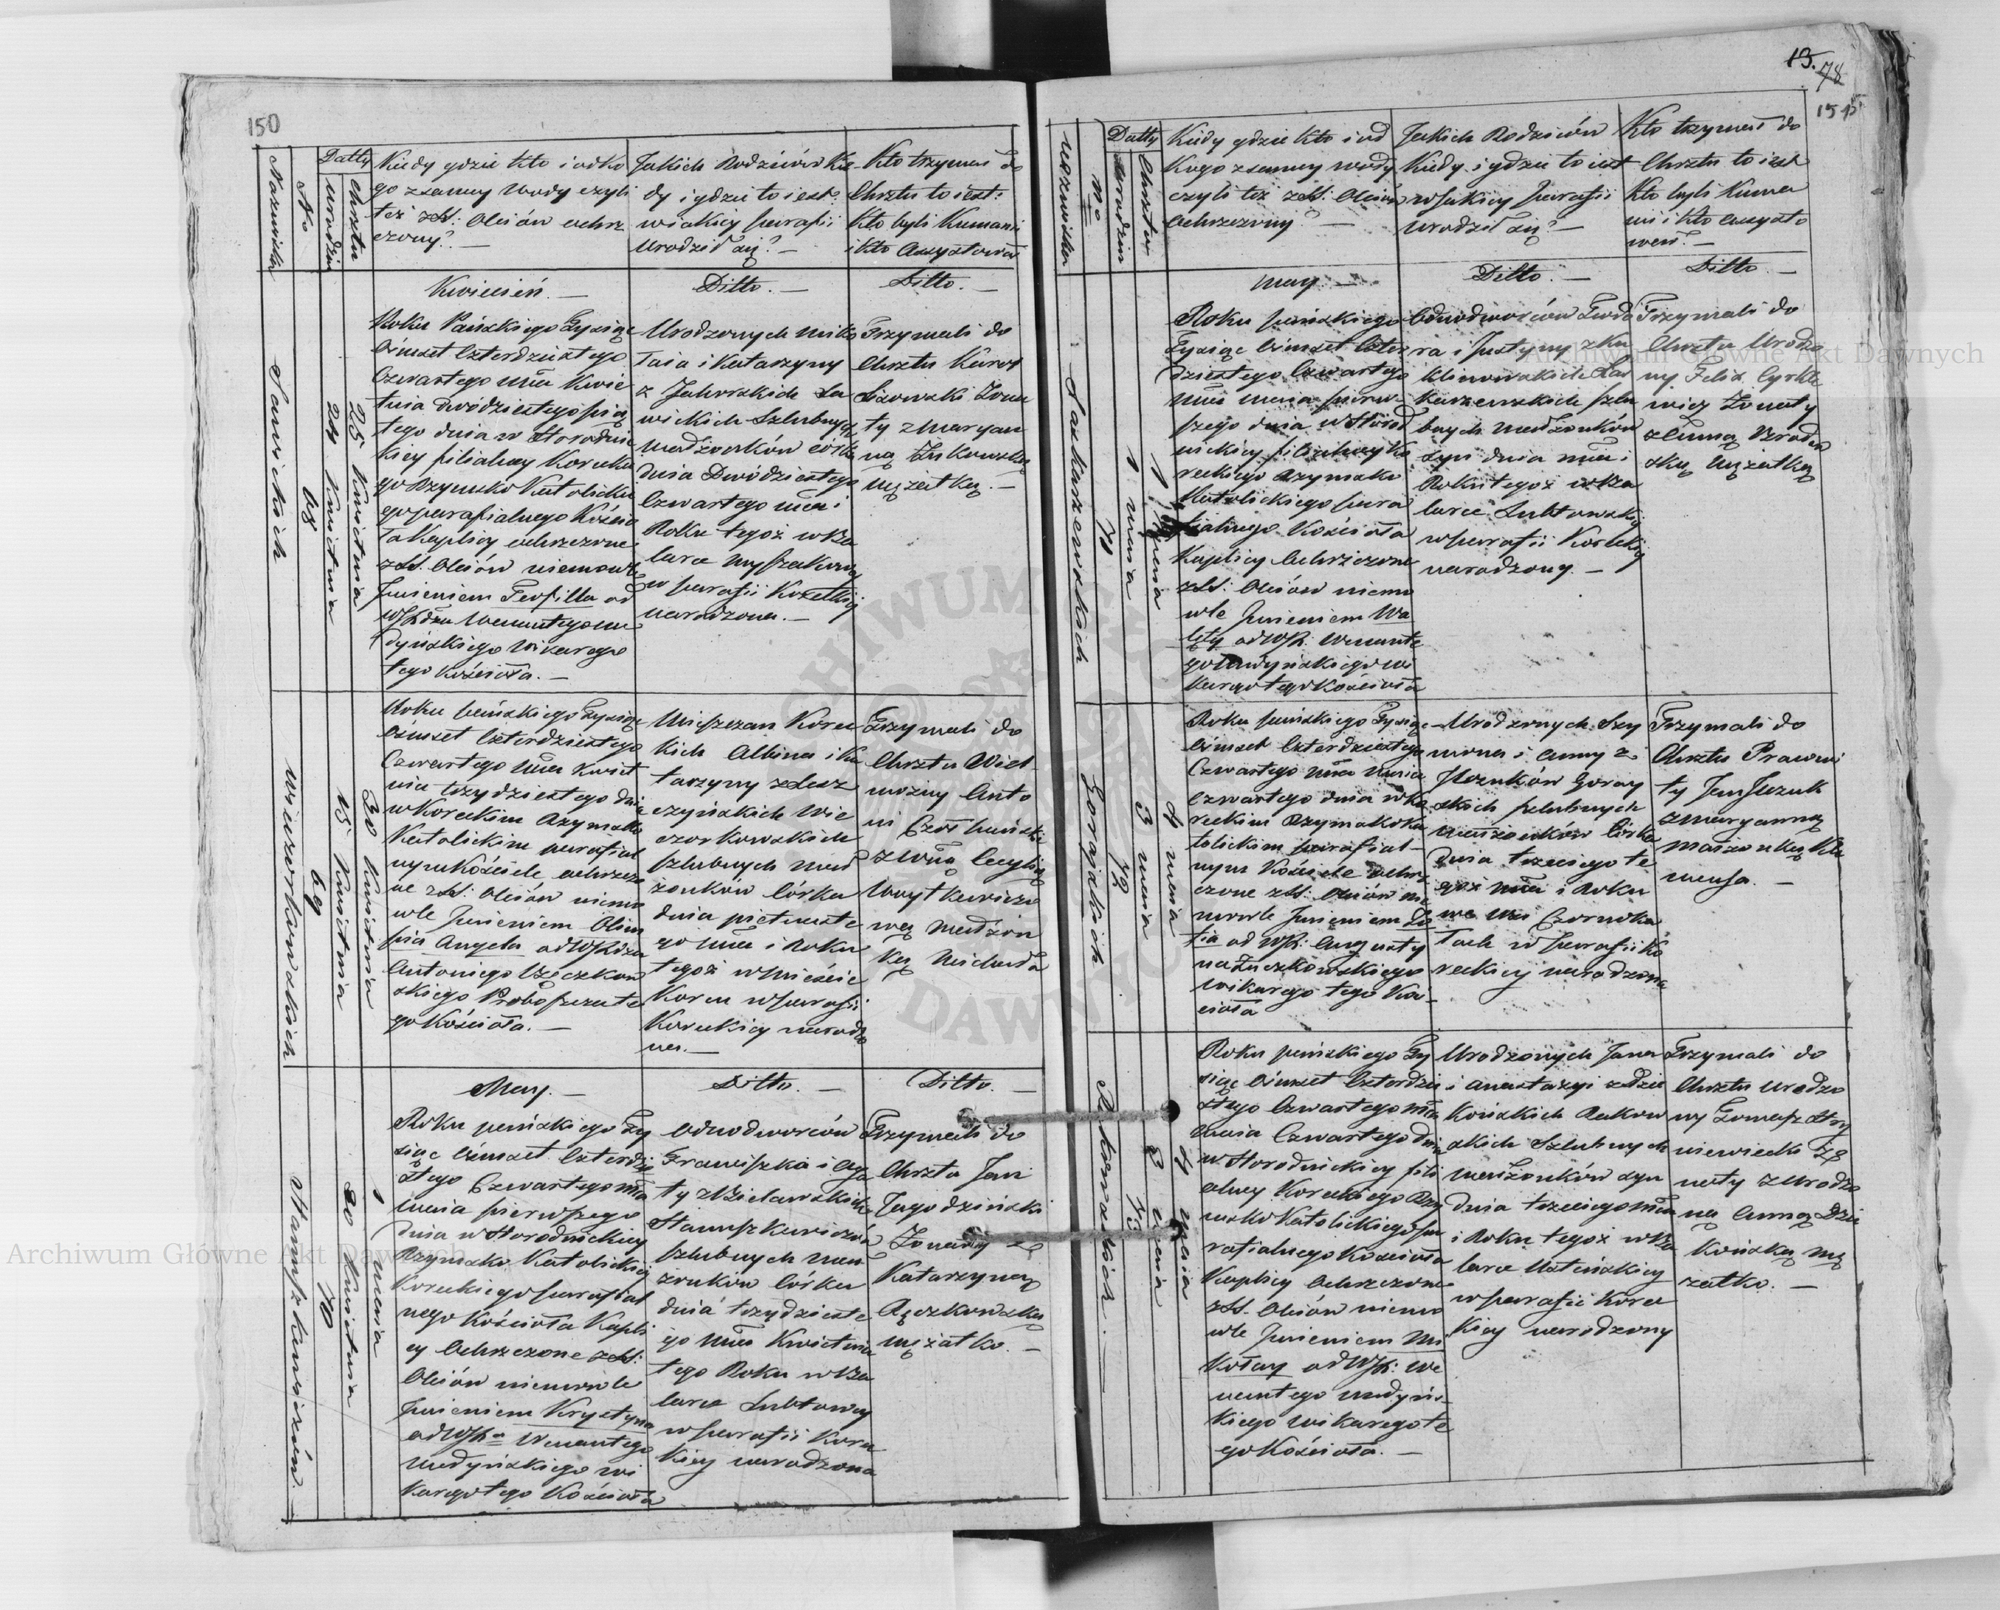 150
Nazwiska
No
Datty
urodzin
chrztu
Kiedy gdzie kto i od ko
go z samey wody czyli
też z SS: Olejów ochrz
czony? —
Jakich Rodziców Kie
dy i gdzie to iest:
w iakiey parafii
urodził się? —
Kto trzymał do
Chrztu to iest:
Kto byli Kumami
i kto assystował
Kwiecień. —
Ditto. —
Ditto. —
Sawickich
68
24 Kwietnia
25 Kwietnia
Roku Pańskiego Tysiąc
Ośmset Czterdziestego
Czwartego mca Kwie
tnia dwódziestego pią
tego dnia w Horodnic
kiey filialney Korecko
go Rzymsko Katolickie
go parafialnego Kościo
ła Kaplicy ochrzczone
z SS. Olejów niemowle
Jmieniem Teofilla od
Wenantego me
dyńskiego wikarego
tego Kościoła. —
Urodzonych Miko
łaia i Katarzyny
z Sa
wickich Szlubnych
małżonków córka
dnia Dwódziestego
Czwartego mca i
Roku tegoż w Rża
larce
w parafii Koreckiej
narodzona. —
Trzymali do
Chrztu Karol
Lisowski Żona
ty z Maryan
ną Żukowską
mężatką. —
Wieczorkowskich
69
15 Kwietnia
30 Kwietnia
Roku pańskiego Tysiąc
Ośmset Czterdziestego
Czwartego mca Kwiet
nia trzydziestego dnia
w Koreckim Rzymsko
Katolickim parafial
nym Kościele ochrzczo
ne z SS. Olejów niemo
wle Jmieniem Olim
pia Angela od
Antoniego
skiego Proboszcza te
go Kościoła. —
Mieszczan Korec
kich Albina i Ka
tarzyny z Lesz
czyńskich Wie
czorkowskich
szlubnych mał
żonków Córka
dnia pietnaste
go mca i Roku
tegoż w mieście
Korcu w parafii
Koreckiey narodzo
na. —
Trzymali do
Chrztu Wiel
możny Anto
ni
z Wną Cecylią
Woytkiewiczo
wą małżon
ką Michała
May. —
Ditto. —
Ditto. —
Staniszkiewiczów. —
70
30 Kwietnia
1 maia
Roku pańskiego Ty
siąc Ośmset Czterdzie
stego Czwartego mca
maia pierwszego
dnia w Horodnickiey
Rzymsko Katolickiej
Koreckiego parafial
nego Kościoła Kapli
cy Ochrzczone z SS:
Olejów niemowle
Jmieniem Krystyna
od Wenantego
medyńskiego wi
karego tego Kościoła
Odnodworców
Franciszka i Aga
ty z Wisławskich
Staniszkiewiczów
szlubnych mał
żonków Córka
dnia trzydzieste
go mca Kwietnia
tego Roku w Rża
larce Lubtowey
w parafii Korec
kiey narodzona
Trzymali do
Chrztu Jan
Jagodziński
Żonaty z
Katarzyną
Rączkowską
mężatko. —
15.
78
151
Nazwiska
No
Datty
urodzin
Chrztu
Kiedy gdzie kto i od
Kogo z samey wody
czyli też z SS. Olejów
Ochrzczony? —
Jakich Rodziców
Kiedy i gdzie to iest
w iakiey parafii
urodził się? —
Kto trzymał do
Chrztu to iest
Kto byli Kuma
mi i kto assysto
wał? —
may. —
Ditto. —
Ditto. —
Laskarzewskich
71
1 maia
1 maia
Roku pańskiego
Tysiąc Ośmset Czter
dziestego Czwartego
mca maia pierw
szego dnia w Horod
nickiey filialney Ko
reckiego Rzymsko
Katolickiego para
fialnego Kościoła
Kaplicy Ochrzczone
z SS. Olejów niemo
wle Jmieniem Wa
lęty od WJX. Wenante
go Medyńskiego wi
karego tego Kościoła
Odnodworców Teodo
ra i Justyny z Ma
klinowskich Las
karzewskich szlu
bnych małżonków
syn dnia mca i
Roku tegoż w Rża
larce Lubtowskiey
w parafii Koreckiey
narodzony. —
Trzymali do
Chrztu Urodzo
ny Felix Cyrkle
wicz Żonaty
z Anną
ską mężatką
Gorajskich
72
3 maia
4 maia
Roku pańskiego Tysiąc
Ośmset Czterdziestego
Czwartego mca maia
Czwartego dnia w Ko
reckim Rzymsko Ka
tolickim parafial
nym Kościele Ochrz
czone z SS. Olejów nie
mowle Jmieniem Zo
fia od WJX. Augusty
na Łuczkowskiego
wikarego tego Koś
cioła
Urodzonych Szy
mona i Anny z
Goray
skich szlubnych
małżonków Córka
dnia trzeciego te
goż mca i Roku
we wsi Czernika
łach w parafii Ko
reckiey narodzona
Trzymali do
Chrztu Pracowi
ty Jan
z Maryanną
małżonką Kle
mensa. —
Rakowskich. —
73
3 maia
4 maia
Roku pańskiego Ty
siąc Ośmset Czterdzie
stego Czwartego mca
maia Czwartego dnia
w Horodnickiey fili
alney Koreckiego Rzy
msko Katolickiego pa
rafialnego Kościoła
Kaplicy Ochrzczone
z SS. Olejów niemo
wle Jmieniem Mi
kołay od WJX: We
nantego medyńs
kiego wikarego te
go Kościoła. —
Urodzonych Jana
i Anastazyi z Dzie
końskich Rakow
skich Szlubnych
małżonków syn
dnia trzeciego mca
i Roku tegoż w Rża
larce Hutińskiey
w parafii Korec
kiey narodzony
Trzymali do
Chrztu Urodzo
ny Tomasz Stry
niewiecki Żo
naty z Urodzo
ną Anną Dzie
końską mę
żatko. —
Archiwum Główne Akt Dawnych
Archiwum Główne Akt Dawnych